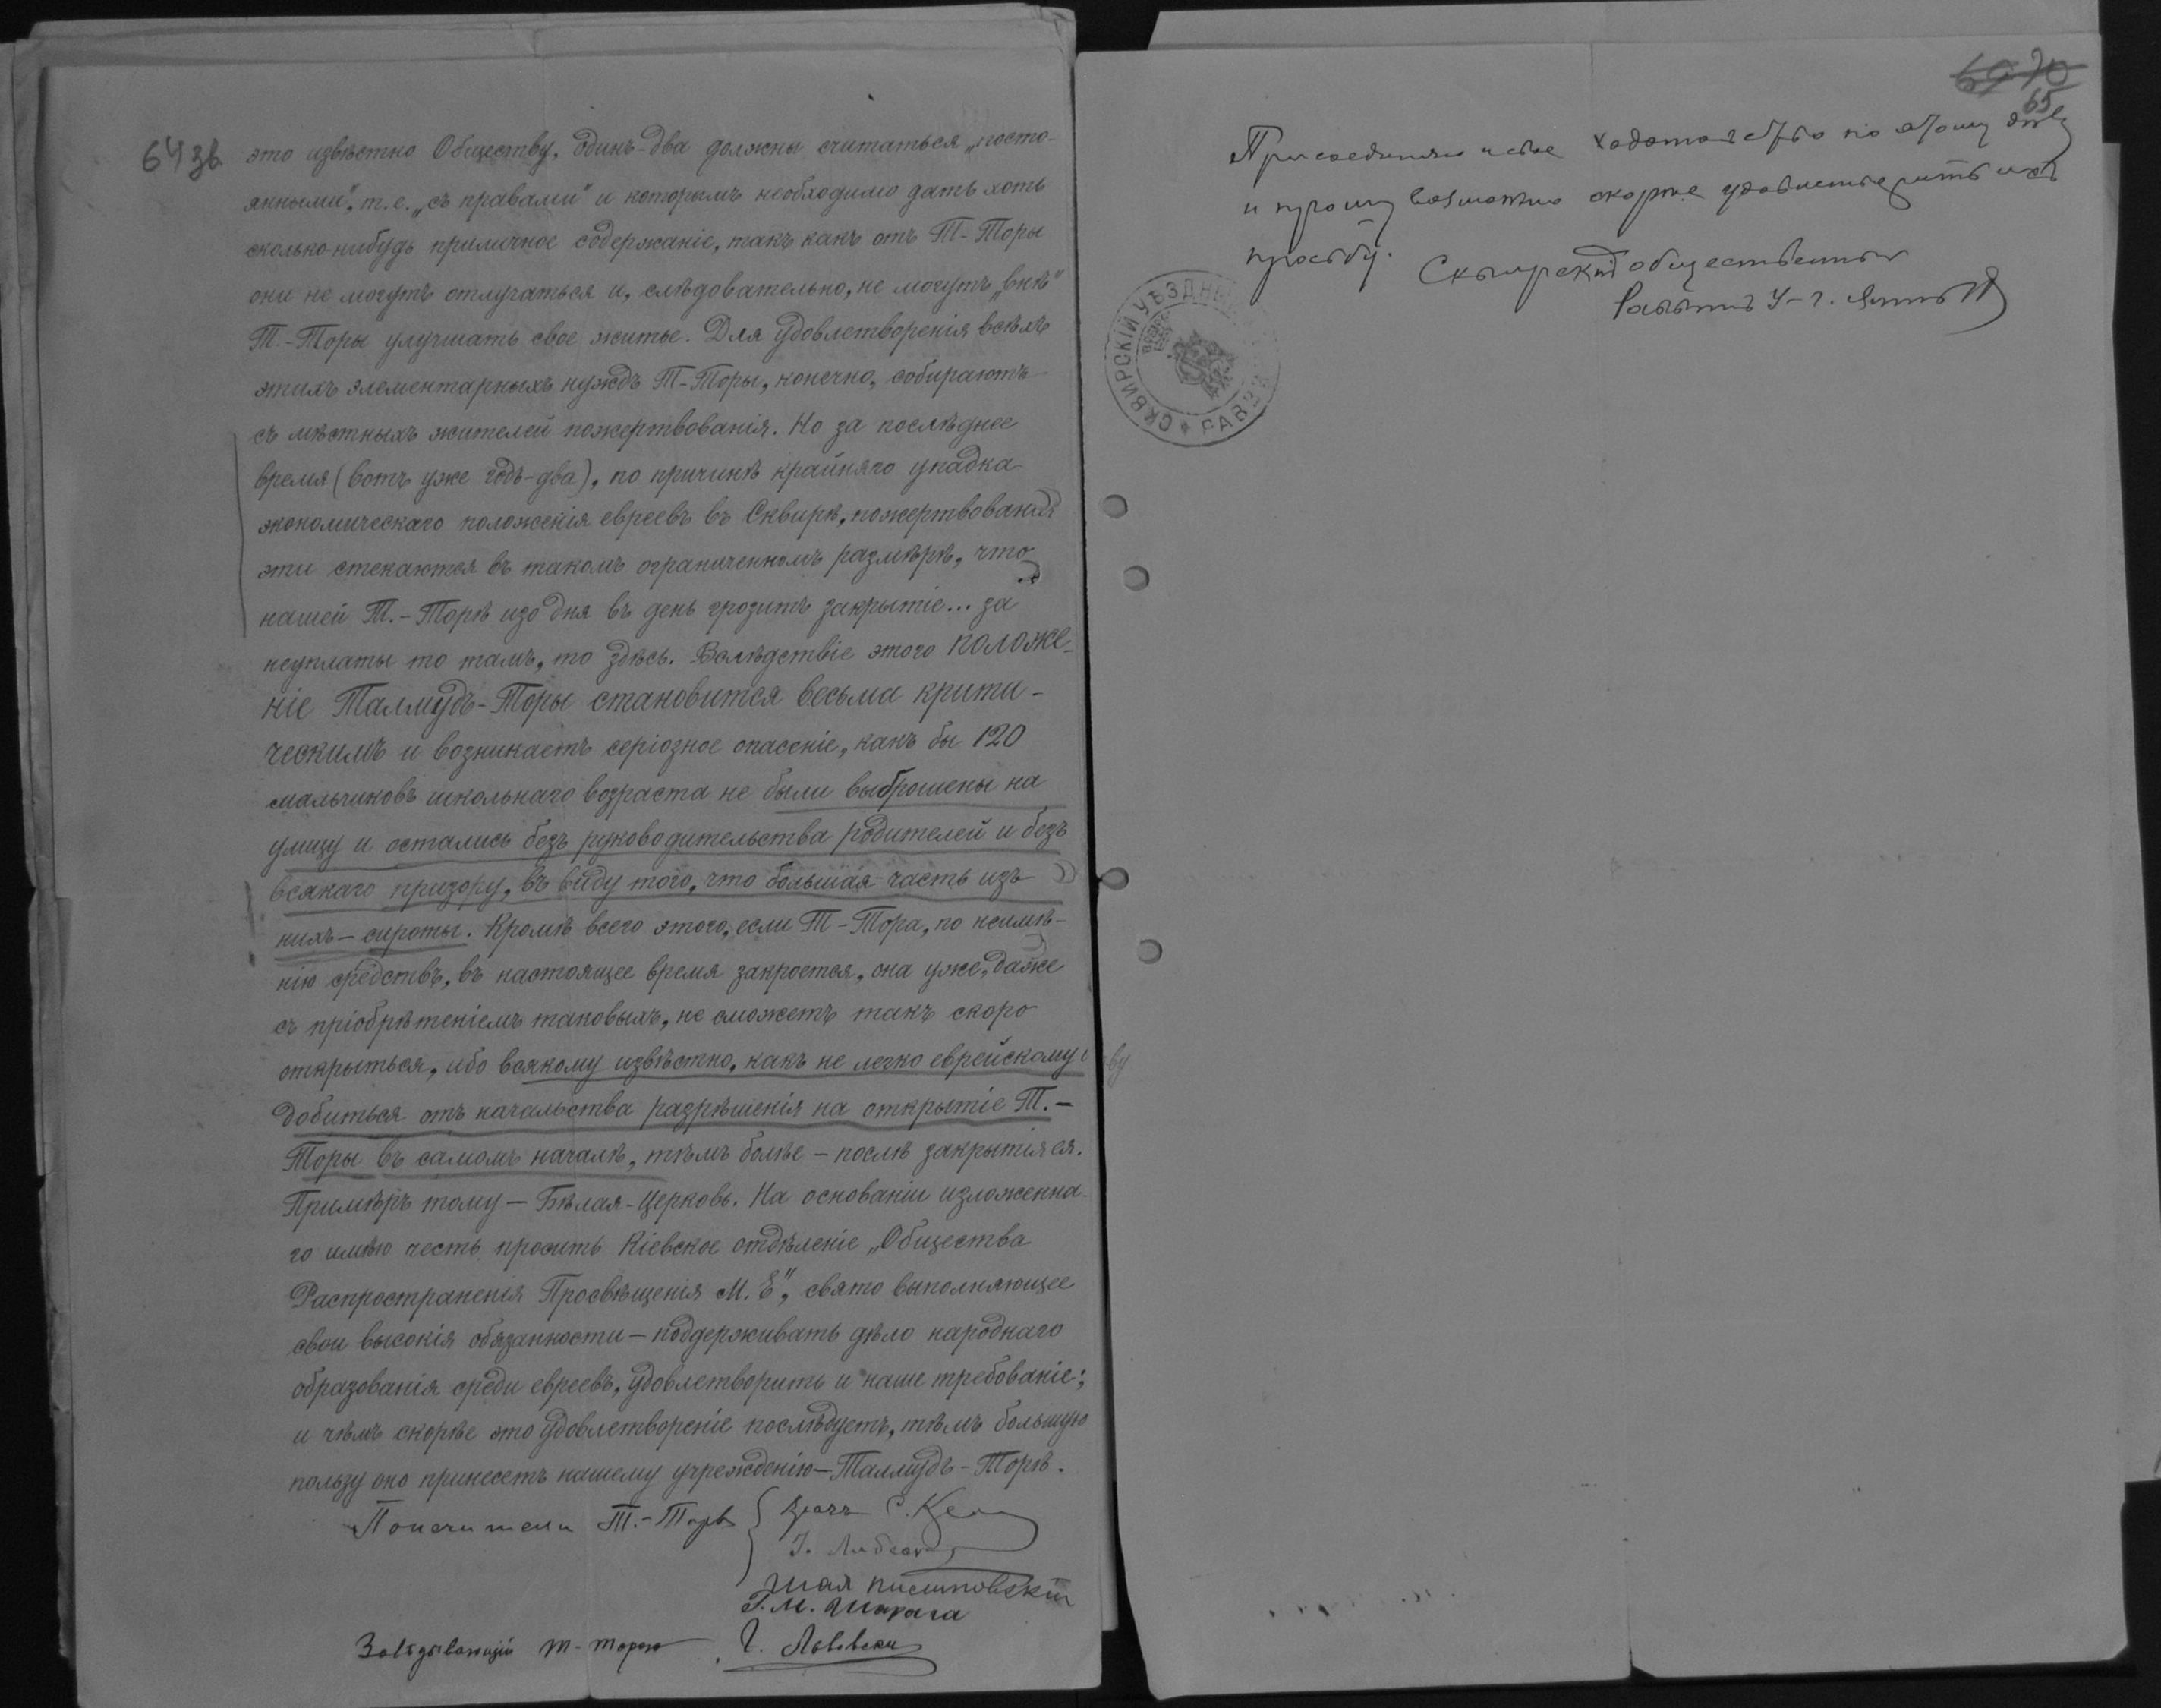 64 зв.
это извѣстно Обществу, одинъ-два должны считаться „посто-
янными", т.е. „съ правами" и которымъ необходимо дать хоть
сколько-нибудь приличное содержаніе, такъ какъ отъ Т-Торы
они не могутъ отлучаться и, слѣдовательно, не могутъ „внѣ"
Т.-Торы улучшать свое житье. Для удовлетворенія всѣхъ
этихъ элементарныхъ нуждъ Т-Торы, конечно, собираютъ
съ мѣстныхъ жителей пожертвованія. Но за послѣднее
время (вотъ уже годъ-два), по причинѣ крайняго упадка
экономическаго положенія евреевъ въ Сквирѣ, пожертвованія
эти стекаются въ такомъ ограниченномъ размѣрѣ, что
нашей Т.-Торѣ изо дня въ день грозитъ закрытіе... за
неуплаты то тамъ, то здѣсь. Вслѣдствіе этого положе-
ніе Талмудъ-Торы становится весьма крити-
ческимъ и возникаетъ серіозное опасеніе, какъ бы 120
мальчиковъ школьнаго возраста не были выброшены на
улицу и остались безъ руководительства родителей и безъ
всякаго призору, въ виду того, что большая часть изъ
нихъ — сироты. Кромѣ всего этого, если Т-Тора, по неимѣ-
нію средствъ, въ настоящее время закроется, она уже, даже
съ пріобрѣтеніемъ таковыхъ, не сможетъ такъ скоро
открыться, ибо всякому извѣстно, какъ не легко еврейскому
добиться отъ начальства разрѣшенія на открытіе Т.-
Торы въ самомъ началѣ, тѣмъ болѣе — послѣ закрытія ея.
Примѣръ тому — Бѣлая-Церковь. На основаніи изложенна-
го имѣю честь просить Кіевское отдѣленіе „Общества
Распространенія Просвѣщенія М. Е", свято выполняющее
свои высокія обязанности — поддерживать дѣло народнаго
образованія среди евреевъ, удовлетворить и наше требованіе;
и чѣмъ скорѣе это удовлетвореніе послѣдуетъ, тѣмъ большую
пользу оно принесетъ нашему учрежденію — Талмудъ-Торѣ.
Попечители Т.-Торы Врачъ С.
Шая
Г.М. Шарага
Завѣдывающій Т-Торою Львовскі
65
Присоединяю и свое ходатайство по этому дѣлу
и прошу возможно скорѣе удовлетворить ихъ
просьбу.
Сквирскій общественный
Раввинъ
СКВИРСКІЙ УѢЗДНЫЙ РАВВИ